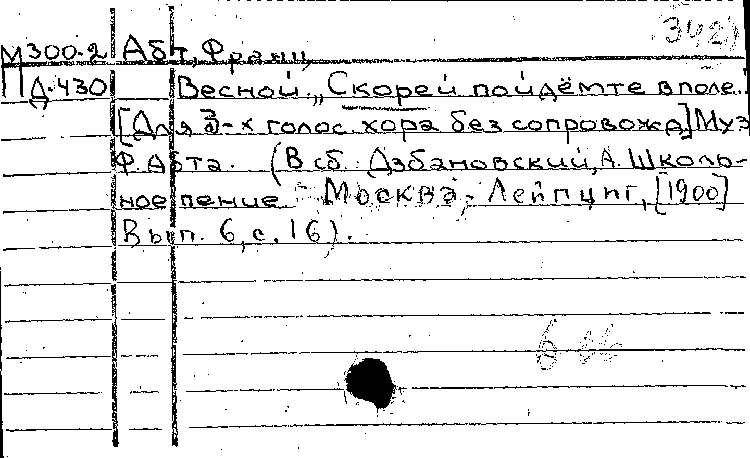 342)
М300.2 Абт, Франц,
Д.430 Весной. „Скорей пойдёмте в поле..."
[Для 3-х голос. хора без сопровожд.] Муз.
Ф. Абта. (В сб. Дзбановский, А. Школь-
ное пение. Москва, Лейпциг, [1900]
Вып. 6, с. 16).